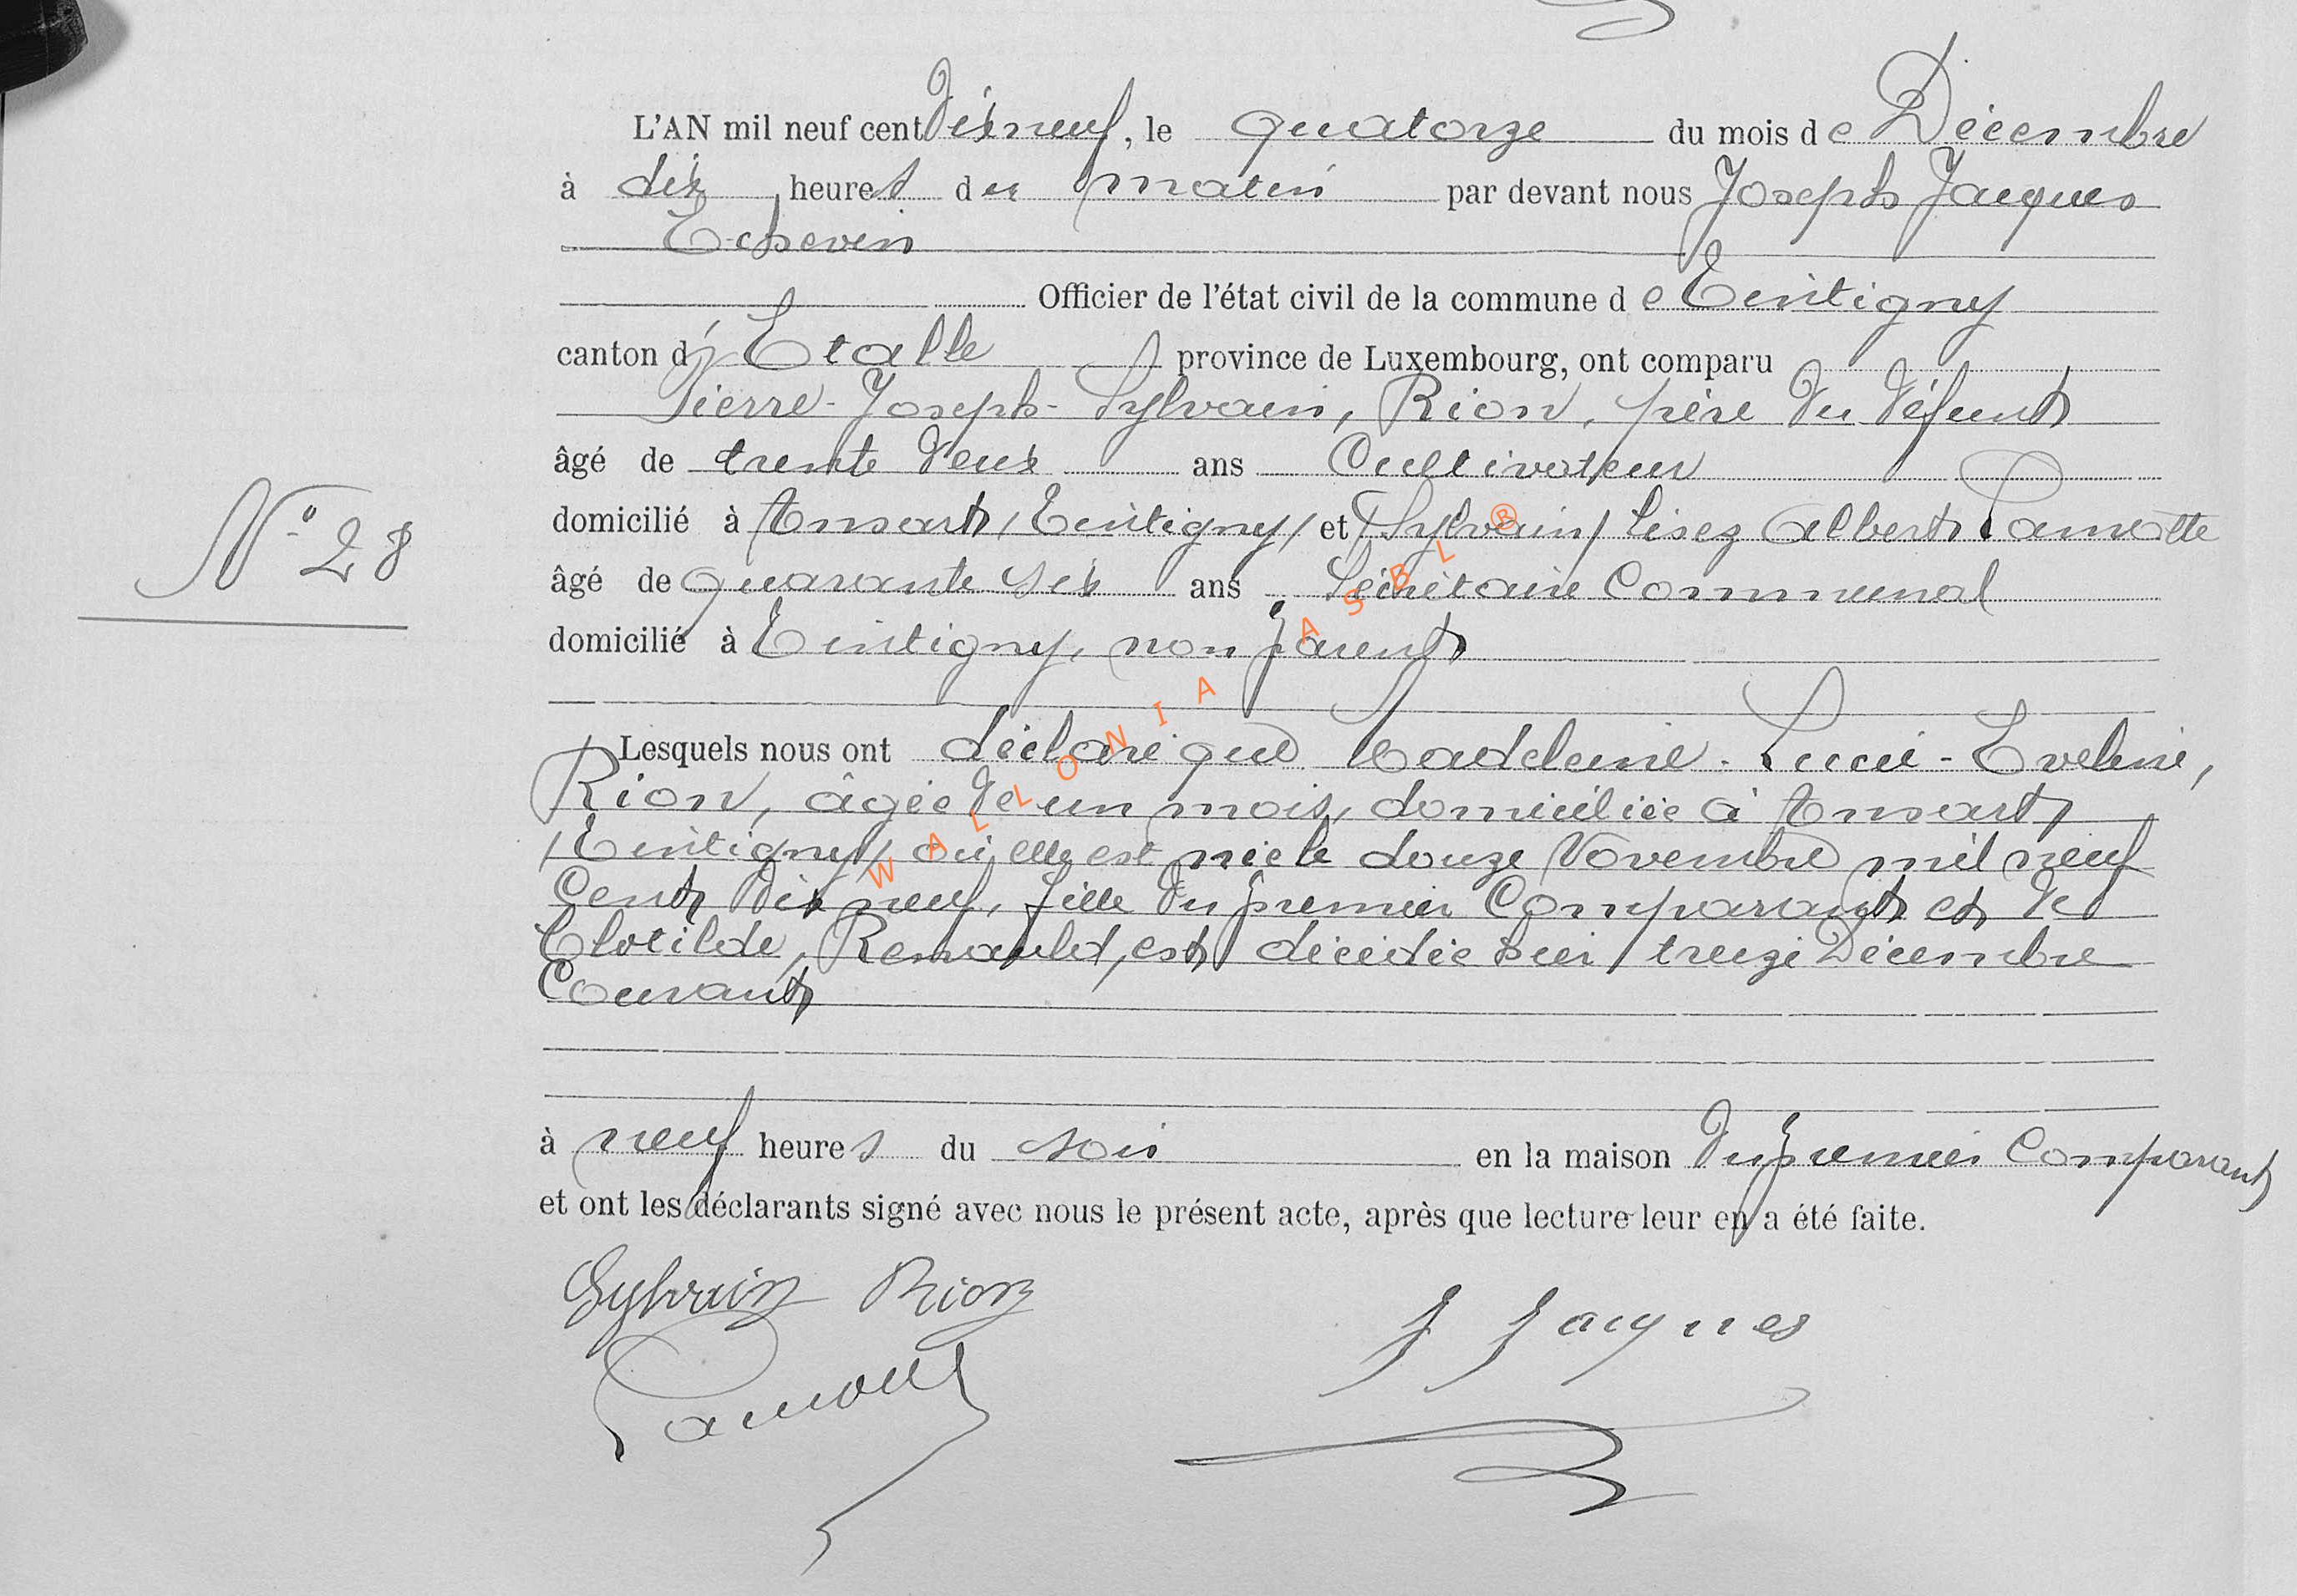 L'AN mil neuf cent dix neuf, le quatorze du mois de Décembre
à dix heures du matin par devant nous Joseph Jacques
Echevin
Officier de l'état civil de la commune de Tintigny
canton d'Etalle province de Luxembourg, ont comparu
Pierre-Joseph-Sylvain, Rion, père du défunt
âgé de trente deux ans Cultivateur
domicilié à Ansart, (Tintigny) et (Sylvain) lisez Albert Lamotte
N° 28
âgé de quarante six ans Secrétaire Communal
domicilié à Tintigny, non parent
Lesquels nous ont déclaré que Madeleine-Lucie-Eveline,
Rion, âgée de un mois, domiciliée à Ansart
(Tintigny) où elle est née le douze Novembre mil neuf
Cent dix neuf, fille du premier Comparant et de
Clotilde, Renauld, est décédée hier treize Décembre
Courant
à neuf heures du soir en la maison du premier Comparant
et ont les déclarants signé avec nous le présent acte, après que lecture leur en a été faite.
Sylvain Rion
J Jacques
Lamotte
WALLONIA ASBL ®